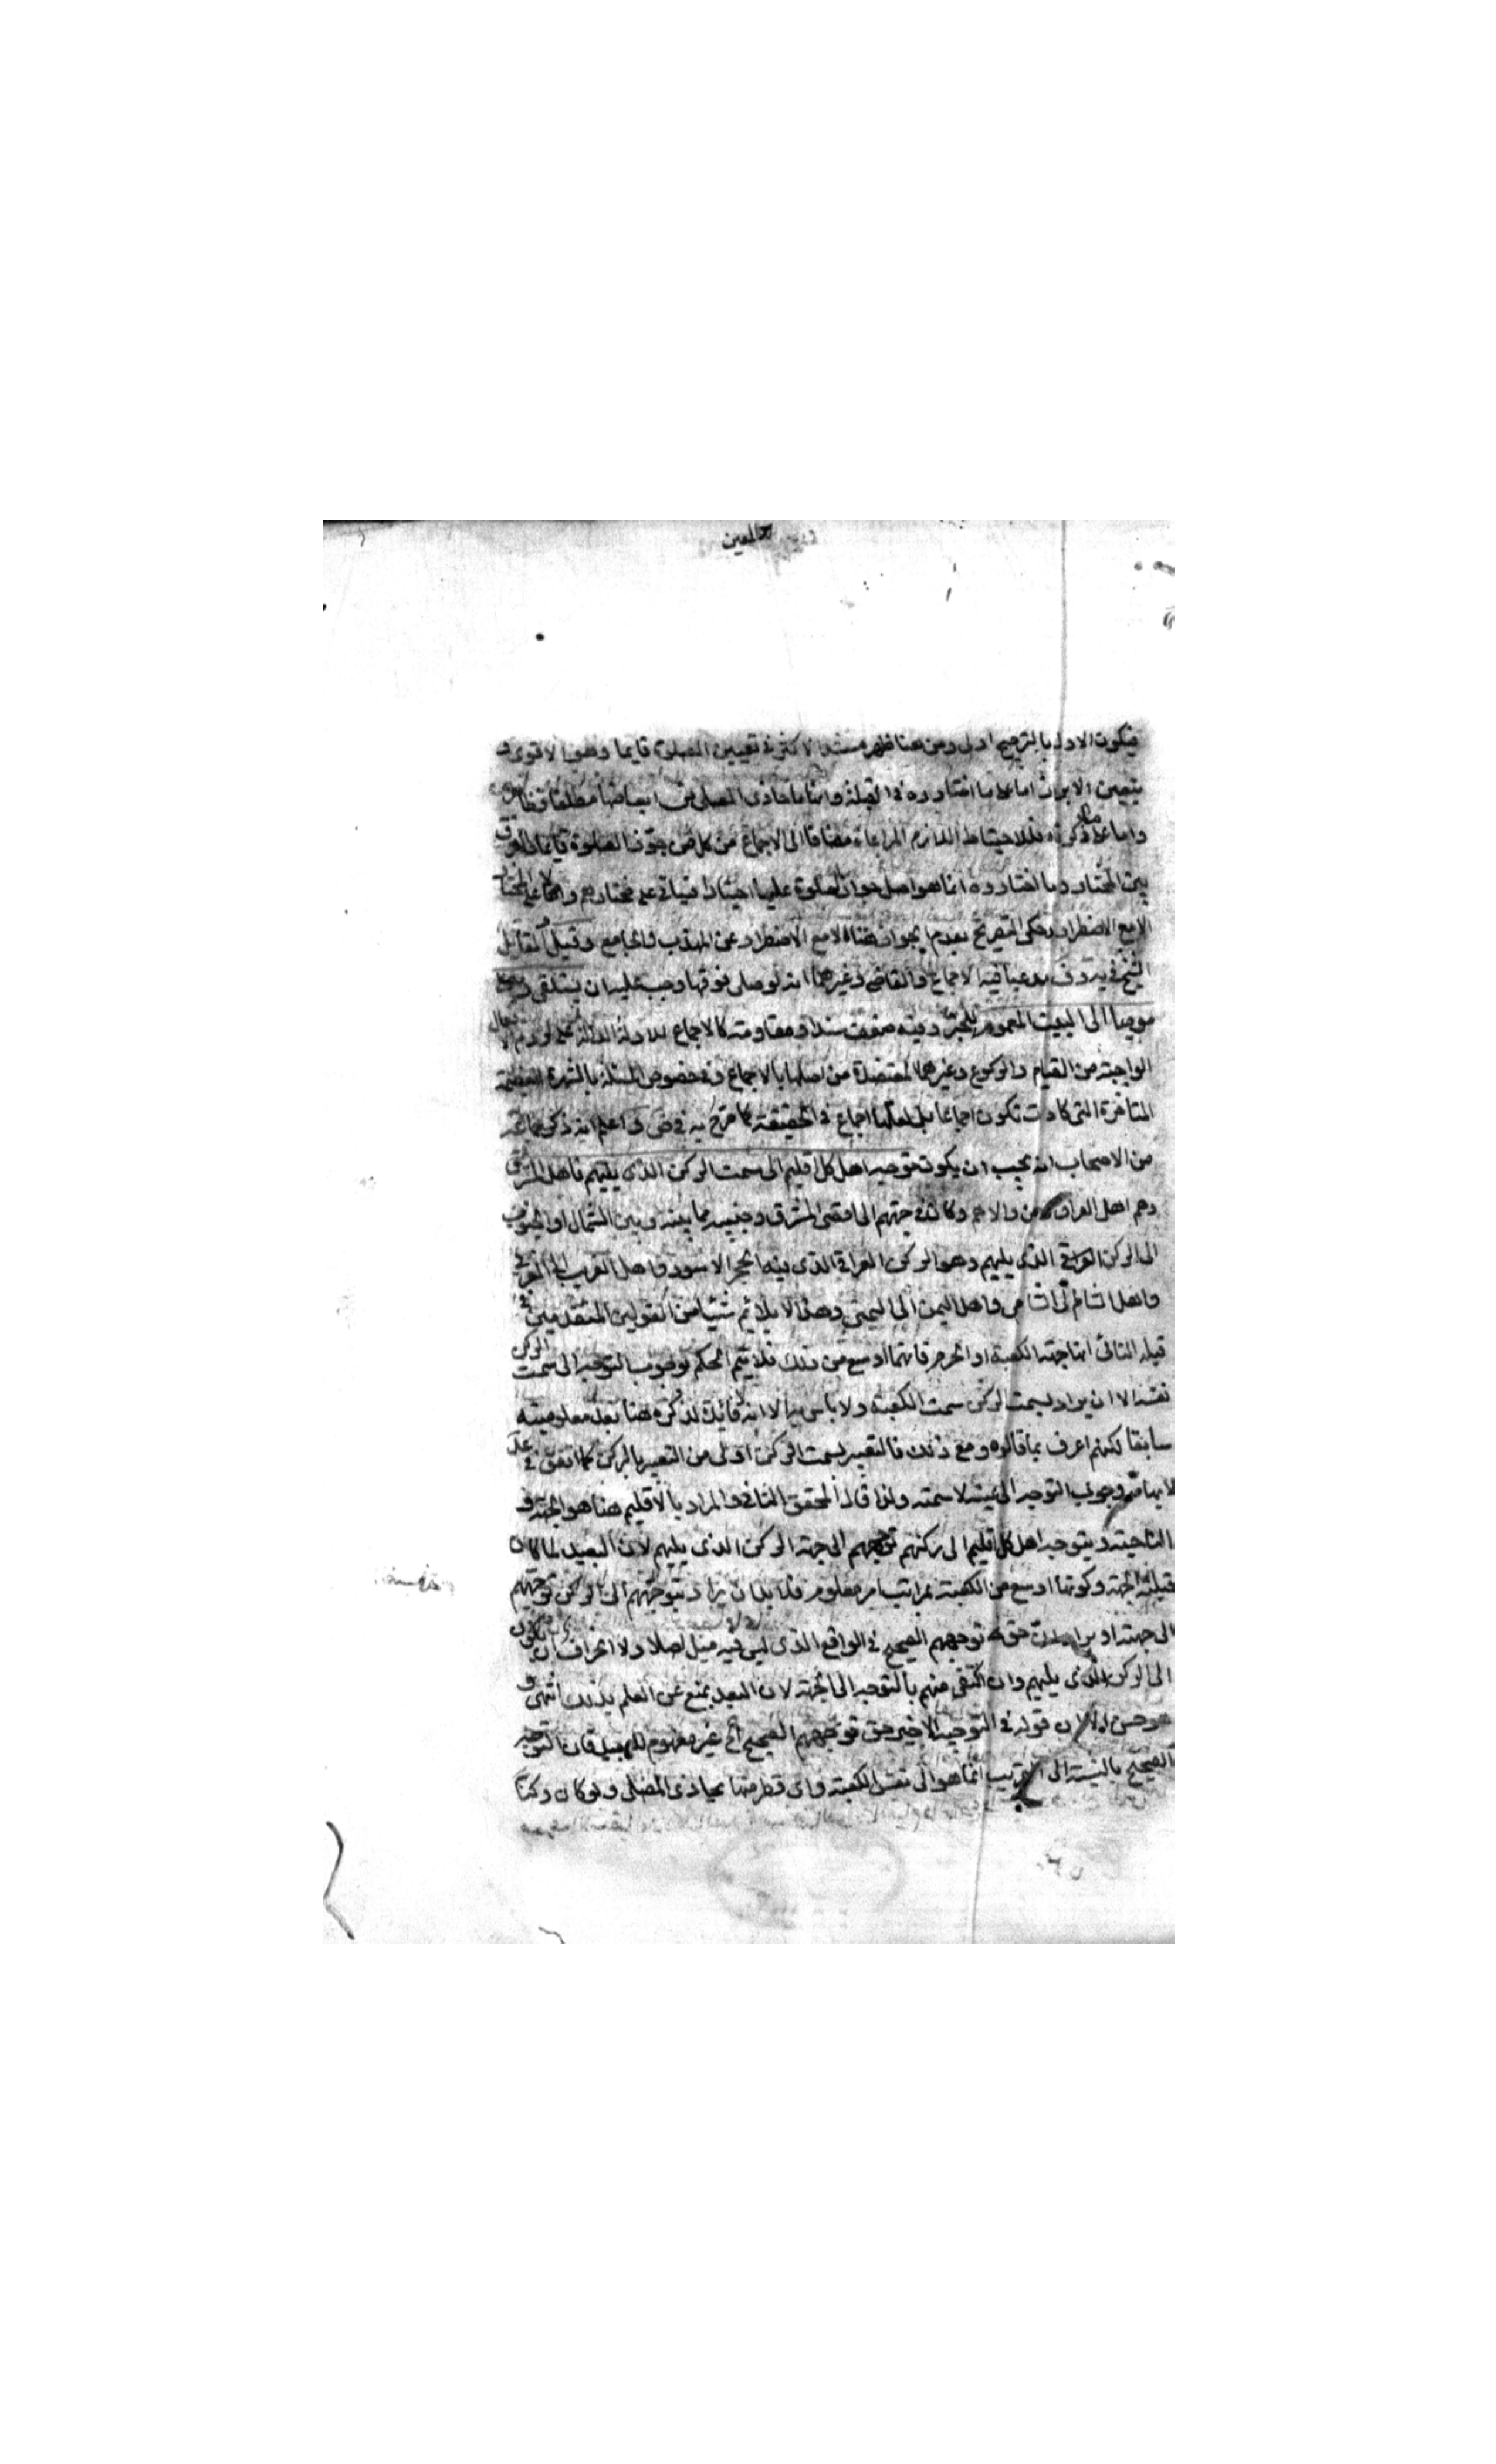 المعين
فيكون الاول بالترجيح اولى ومن هنا ظهر مستند الاكثر في تعيين الصلوة قايما وهو الاقوى و
يتعين الابراز اما على ما اختاروه في القبلة وانها ما حاذى المصلى من ابعاضها مطلقا فظاهر
واما على ما ذكرناه فللاحتياط اللازم المراعاة مضافا الى الاجماع من كل من جوز الصلوة قايما والفرق
بين المختار وما اختاروه انما هو اصل جواز الصلوة عليها اختيارا فيأتي على مختارهم واما على المختار لا
الا مع الاضطرار وحكى التصريح بعدم الجواز هنا الا مع الاضطرار عن المهذب والجامع وقيل القائل
الشيخ في يه وف مدعيا فيه الاجماع والقاضى وغيرهما انه لو صلى فوقها وجب عليه ان يستلقى ويصلى
موميا الى البيت المعمور للخبر وفيه ضعف سندا ومقاومته كالاجماع للادلة الدالة على لزوم الافعال
الواجبة من القيام والركوع وغيرهما المعتضدة من اصلها بالاجماع وفي خصوص المسئلة بالشهرة العظيمة
المتاخرة التى كادت تكون اجماعا بل لعلها اجماع في الحقيقة كما صرح به في ض واعلم انه ذكر جماعة
من الاصحاب انه يجب ان يكون توجه اهل كل اقليم الى سمت الركن الذى يليهم فاهل المشرق
وهم اهل العراق ومن والاهم وكان في جهتهم الى اقصى المشرق وجنبيه مما بينه وبين الشمال او الجنوب
الى الركن العراقي الذى يليهم وهو الركن العراقي الذى فيه الحجر الاسود واهل الغرب الى الغربي
واهل الشام الى الشامى واهل اليمن الى اليمنى وهذا لا يلائم شيئا من القولين المتقدمين في
قبلة النائى انها جهة الكعبة او الحرم فانهما اوسع من ذلك فلا يتم الحكم بوجوب التوجه الى سمت الركن
نفسه الا ان يراد بسمت الركن سمت الكعبة ولا باس به الا انه لا فائدة لذكره هنا بعد معلوميته
سابقا لكنهم اعرف بما قالوه ومع ذلك فالتعبير بسمت الركن اولى من التعبير بالركن كما اتفق في عد
لايهامه وجوب التوجه الى عينه لا سمته ولذا قال المحقق الثانى والمراد بالاقليم هنا هو الجهة و
الناحية ويتوجه اهل كل اقليم الى ركنهم توجههم الى جهة الركن الذى يليهم لان البعيد لما كان
قبلته الجهة وكونها اوسع من الكعبة بمراتب امر معلوم فلا بد ان يراد بتوجههم الى الركن توجههم
الى جهته او يراد ان حق توجههم الصحيح في الواقع الذى ليس فيه ميل اصلا ولا انحراف ان يكون
الى الركن الذى يليهم وان اكتفى منهم بالتوجه الى الجهة لان البعد يمنع عن العلم بذلك انتهى و
هو حسن الا ان قوله في التوجيه الاخير حق توجههم الصحيح الخ غير مفهوم للعبد فان التوجه
الصحيح بالنسبة الى القريب انما هو الى نفس الكعبة واى قطر منها يحاذى المصلى ولو كان ركنا